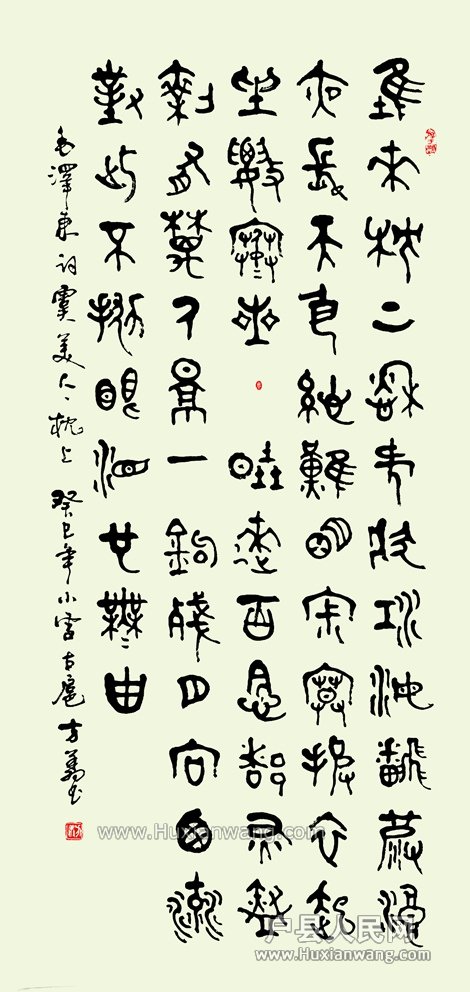 堆來枕上愁何狀江海翻波浪
夜長天色總難明寂寞披衣起
坐數寒星 曉來百念都灰燼
剩有離人影一鉤殘月向西流
對此不拋眼淚也無由
毛澤東詞虞美人、枕上 癸巳年小雪古扈方书
www.Huxianwang.com
户县人民网
www.Huxianwang.com